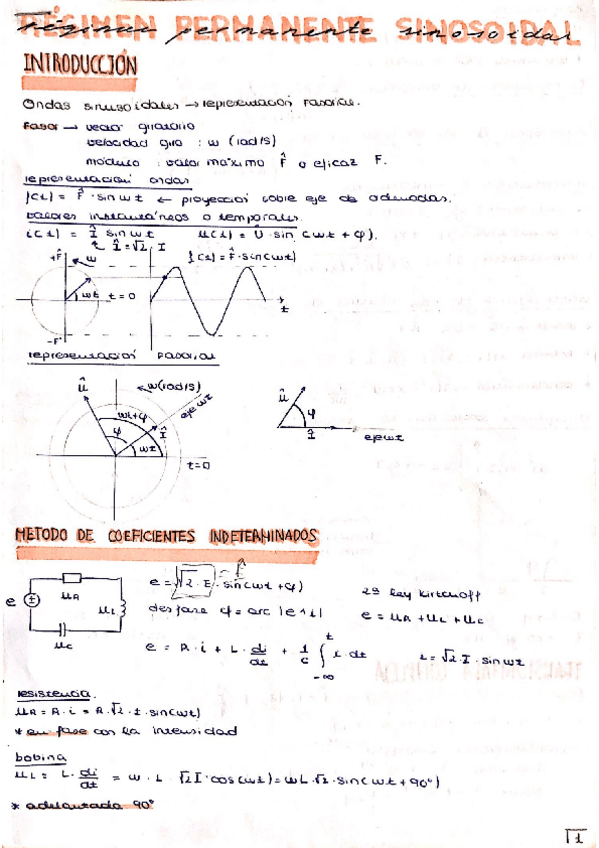 RÉGIMEN PERMANENTE SINOSOIDAL
Régimen permanente sinosoidal
INTRODUCCIÓN
Ondas sinusoidales → representación fasorial.
Fasor → vector giratorio
velocidad giro : w (rad/s)
módulo : valor máximo F̂ o eficaz F.
representación ondas
f(t) = F̂ · sin wt ← proyección sobre eje de ordenadas.
valores instantáneos o temporales.
i(t) = Î sin wt   u(t) = Û · sin (wt + φ).
Î = √2 · I
+F̂   w   f(t) = F̂ · sin(wt)
wt   t = 0   t
-F̂
representación fasorial
Û   w(rad/s)   Û
wt+φ   eje wt   φ
φ   Î   Î   eje wt
wt   t=0
METODO DE COEFICIENTES INDETERMINADOS
e = √2 · E · sin(wt + φ)   = F̂
2ª ley Kirtchoff
e   uR   uL   uC
desfase φ = arc |e i|
e = uR + uL + uC
e = R · i + L · di/dt + 1/C ∫ -∞ t i · dt   i = √2 · I · sin wt
resistencia.
uR = R · i = R · √2 · I · sin(wt)
* en fase con la intensidad
bobina
uL = L · di/dt = w · L · √2 I · cos(wt) = wL √2 · sin(wt + 90°)
* adelantada 90°
1